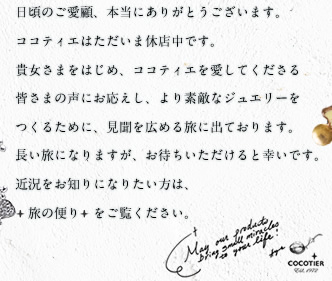 日頃のご愛顧、本当にありがとうございます。
ココティエはただいま休店中です。
貴女さまをはじめ、ココティエを愛してくださる
皆さまの声にお応えし、より素敵なジュエリーを
つくるために、見聞を広める旅に出ております。
長い旅になりますが、お待ちいただけると幸いです。
近況をお知りになりたい方は、
✦ 旅の便り ✦ をご覧ください。
May our products
bring small miracles
to your life!
COCOTIER
Est. 1972